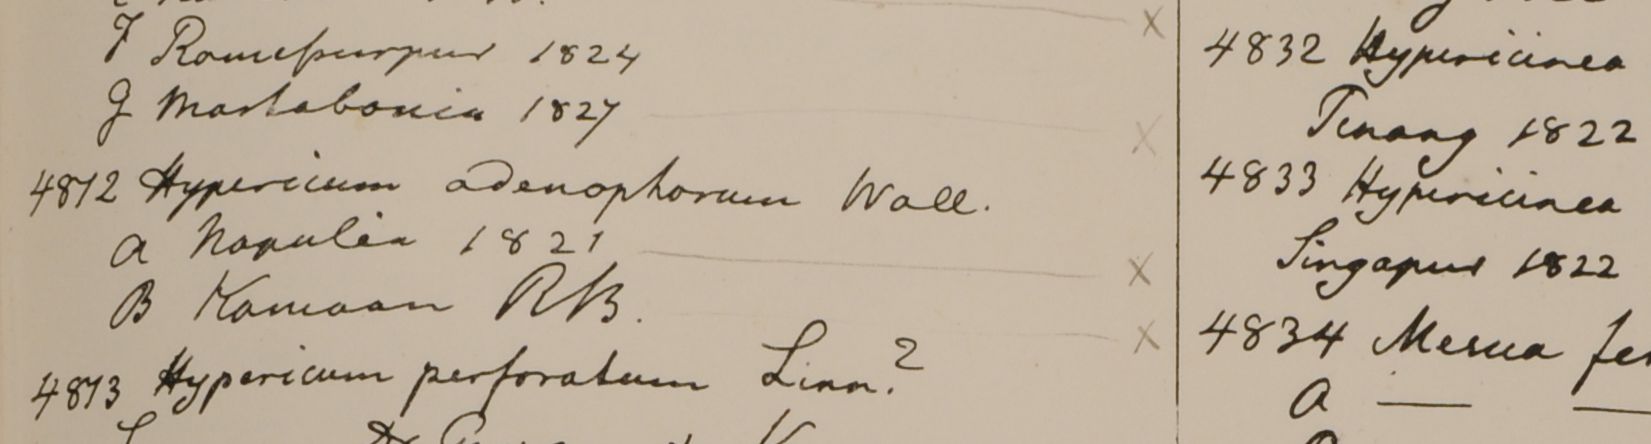 F Ramespurpur 1824
G Martabania 1827
4812 Hypericum adenophorum Wall.
a Napulia 1821
B Kamaon RB.
4813 Hypericum perforatum Linn.?
4832 Hypericinea
Pinang 1822
4833 Hypericinea
Singapur 1822
4834 Mesua fer
a —